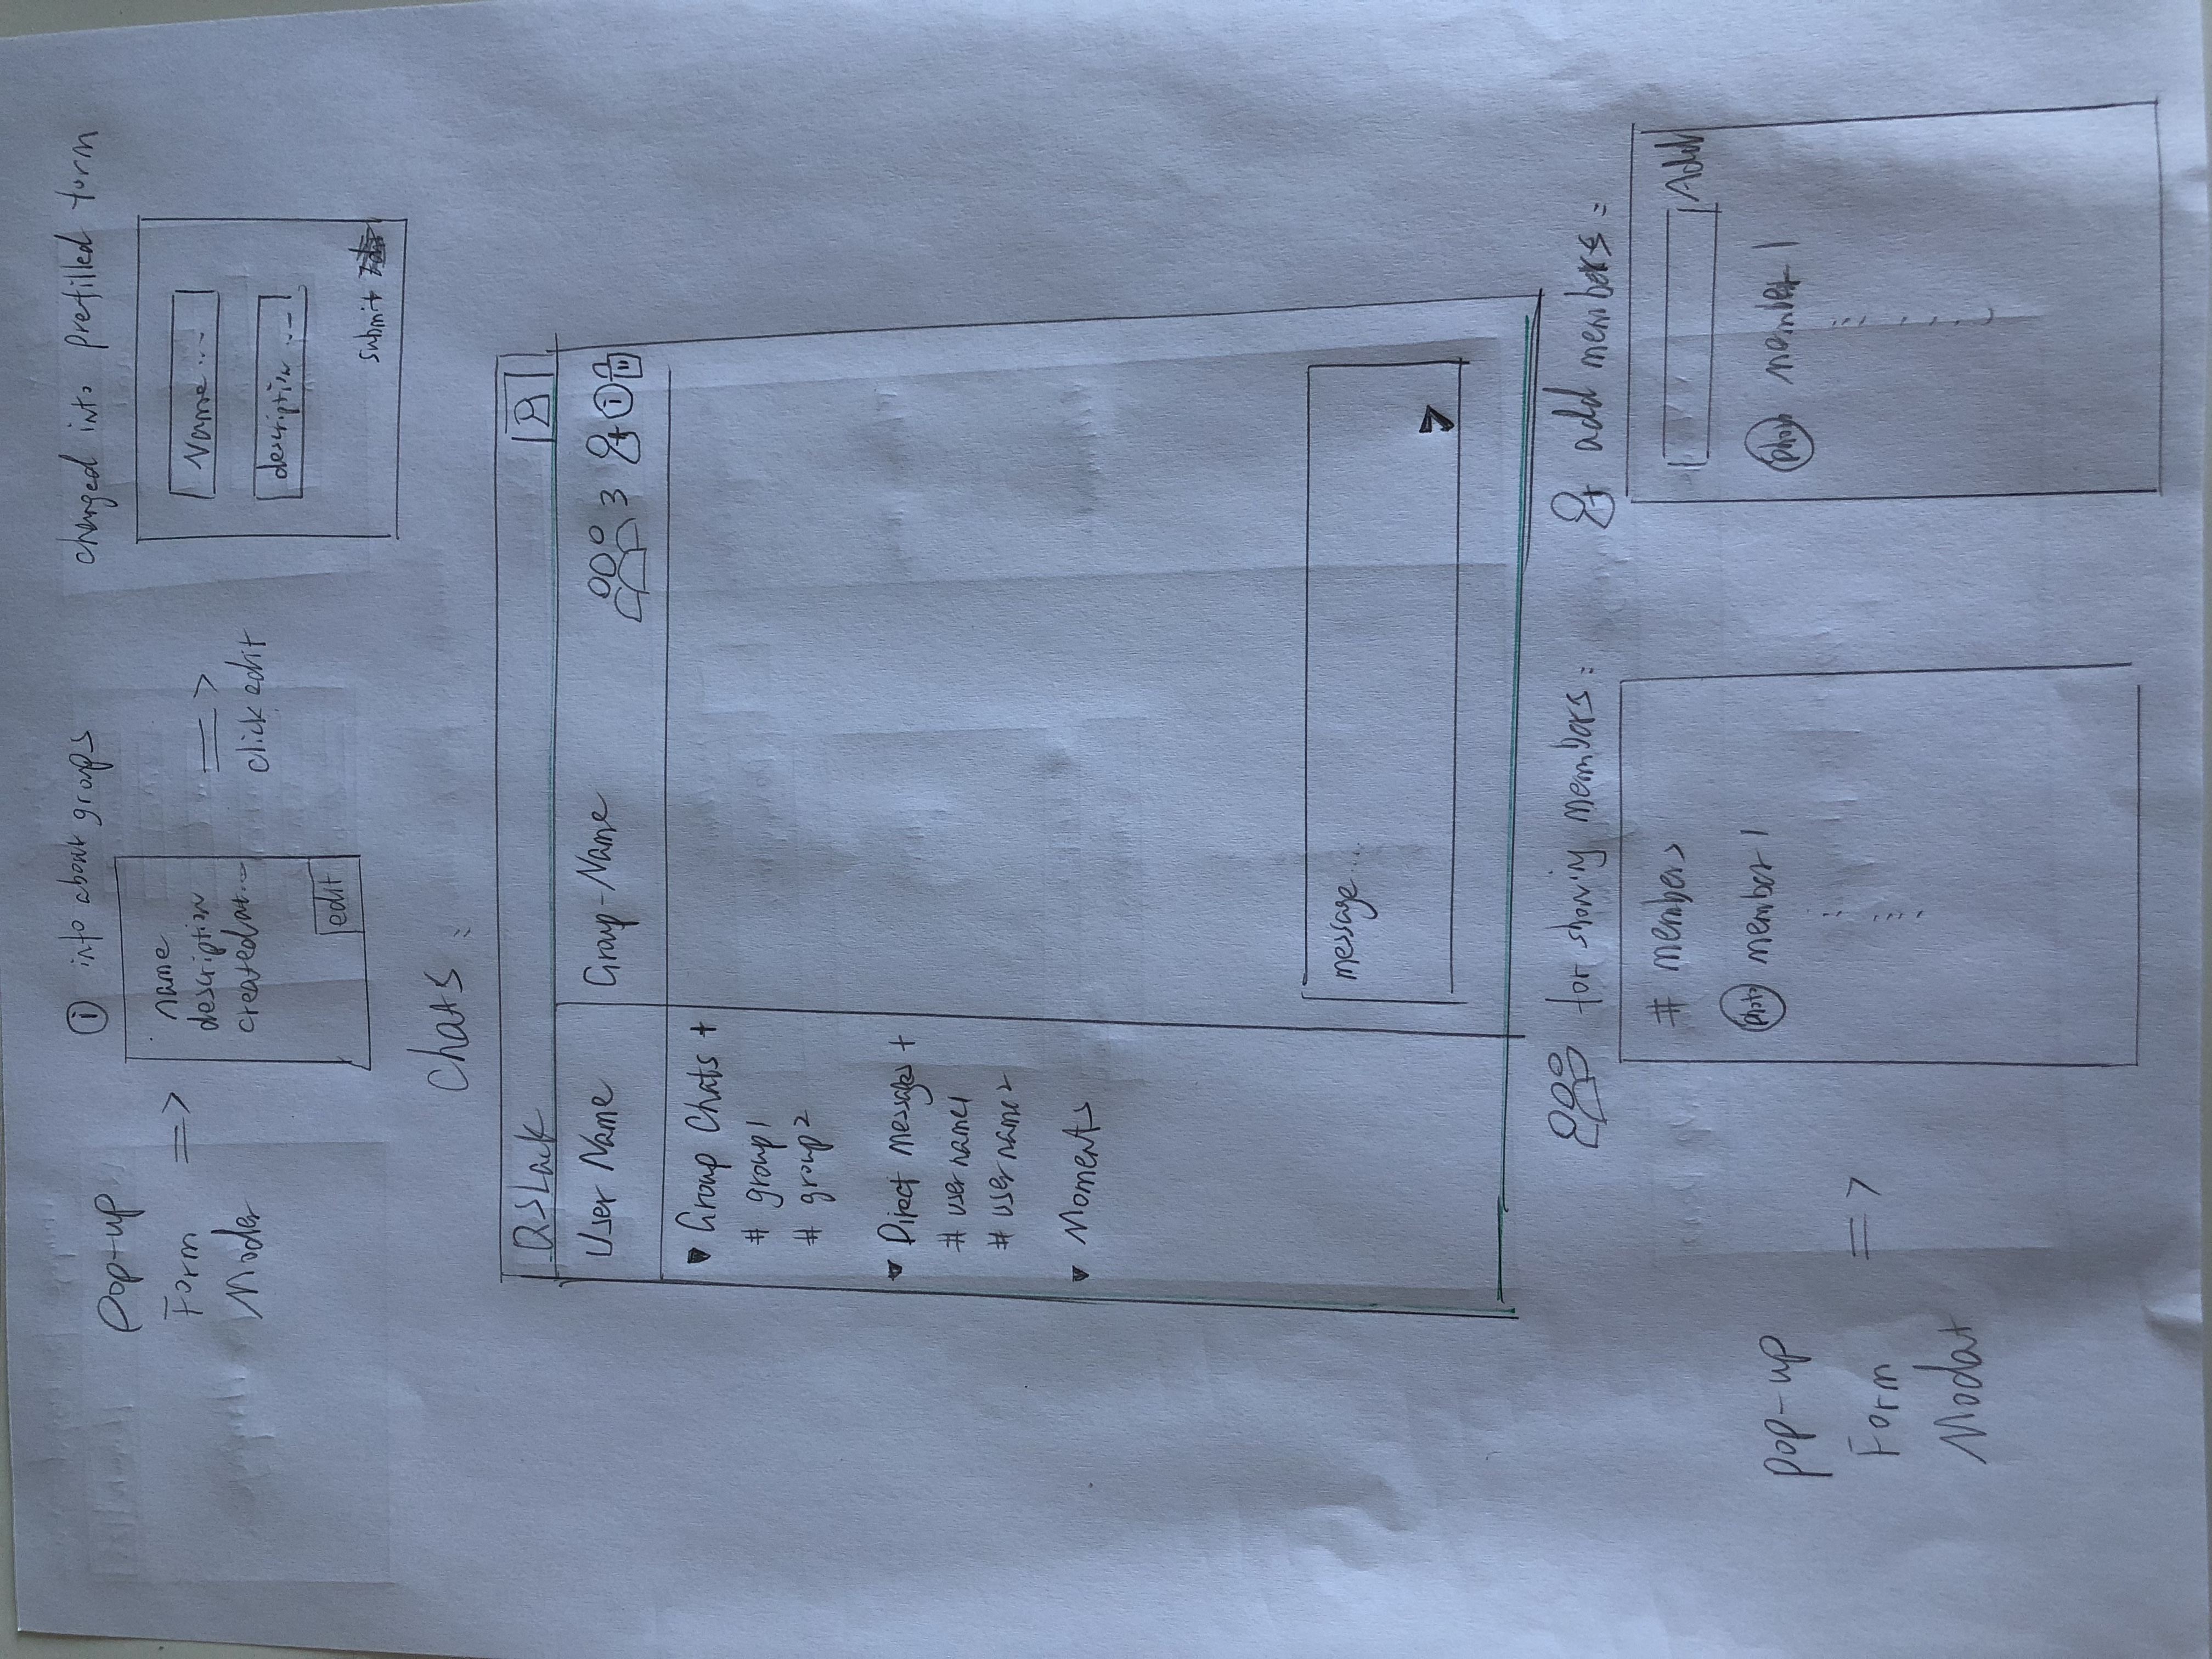 pop-up
Form
Modal
i into about groups
name
description
createdat...
edit
=>
click edit
changed into prefilled form
Name ...
description ...
submit
Chats :
QSLack
User Name
Group-Name
3
i
Group Chats +
# group1
# group2
Direct Messages +
# username1
# username2
Moments
message...
for showing members :
# members
photo member 1
add members :
Add
photo member 1
pop-up
Form
Modal
=>